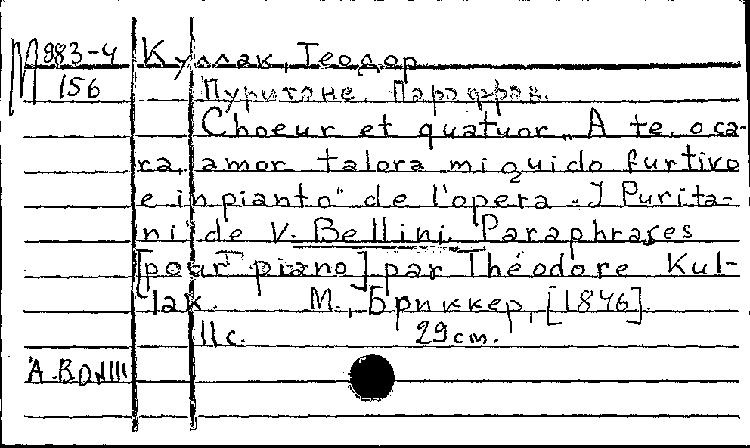 М 983-4 Куллак, Теодор
156 Пуритане. Парафраз.
Choeur et quatuor „A te, o ca-
ra, amor talora mi guido furtivo
e in pianto" de l'opera „I Purita-
ni" de V. Bellini. Paraphrases
[pour piano] par Théodore Kul-
lak. М., Бриккер, [1846]
11 с. 29 см.